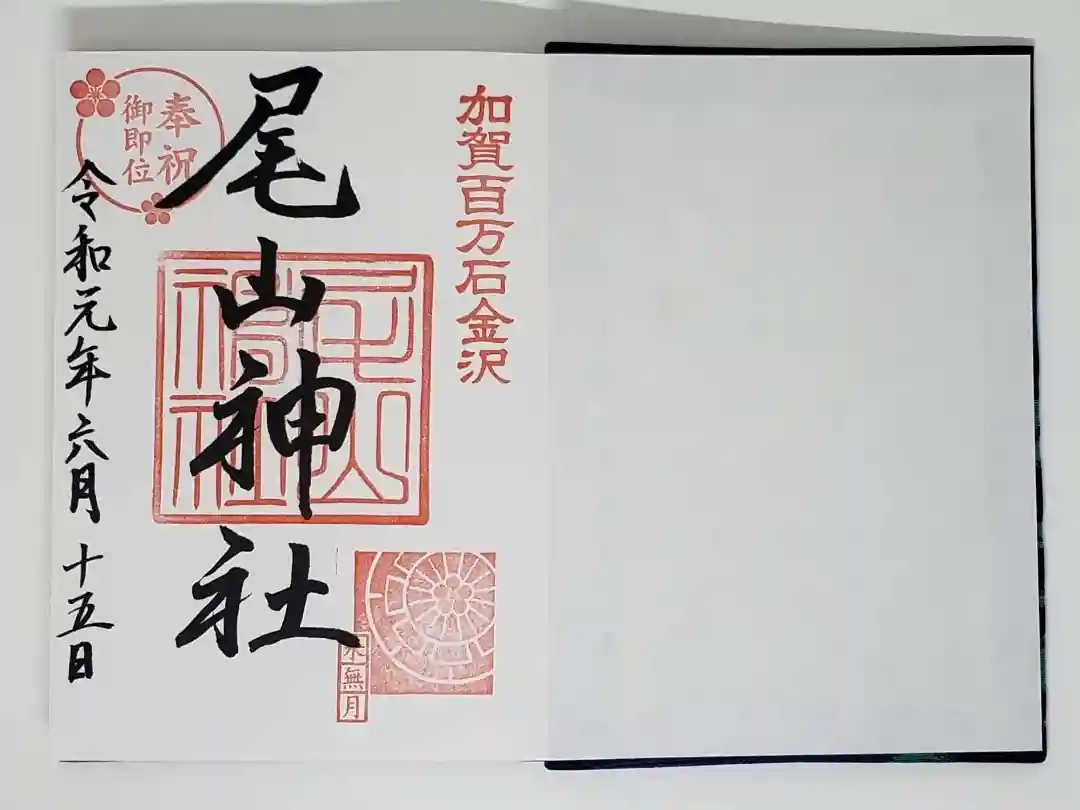 加賀百万石金沢
尾山神社
奉祝
御即位
令和元年六月十五日
尾山
神社
水無月